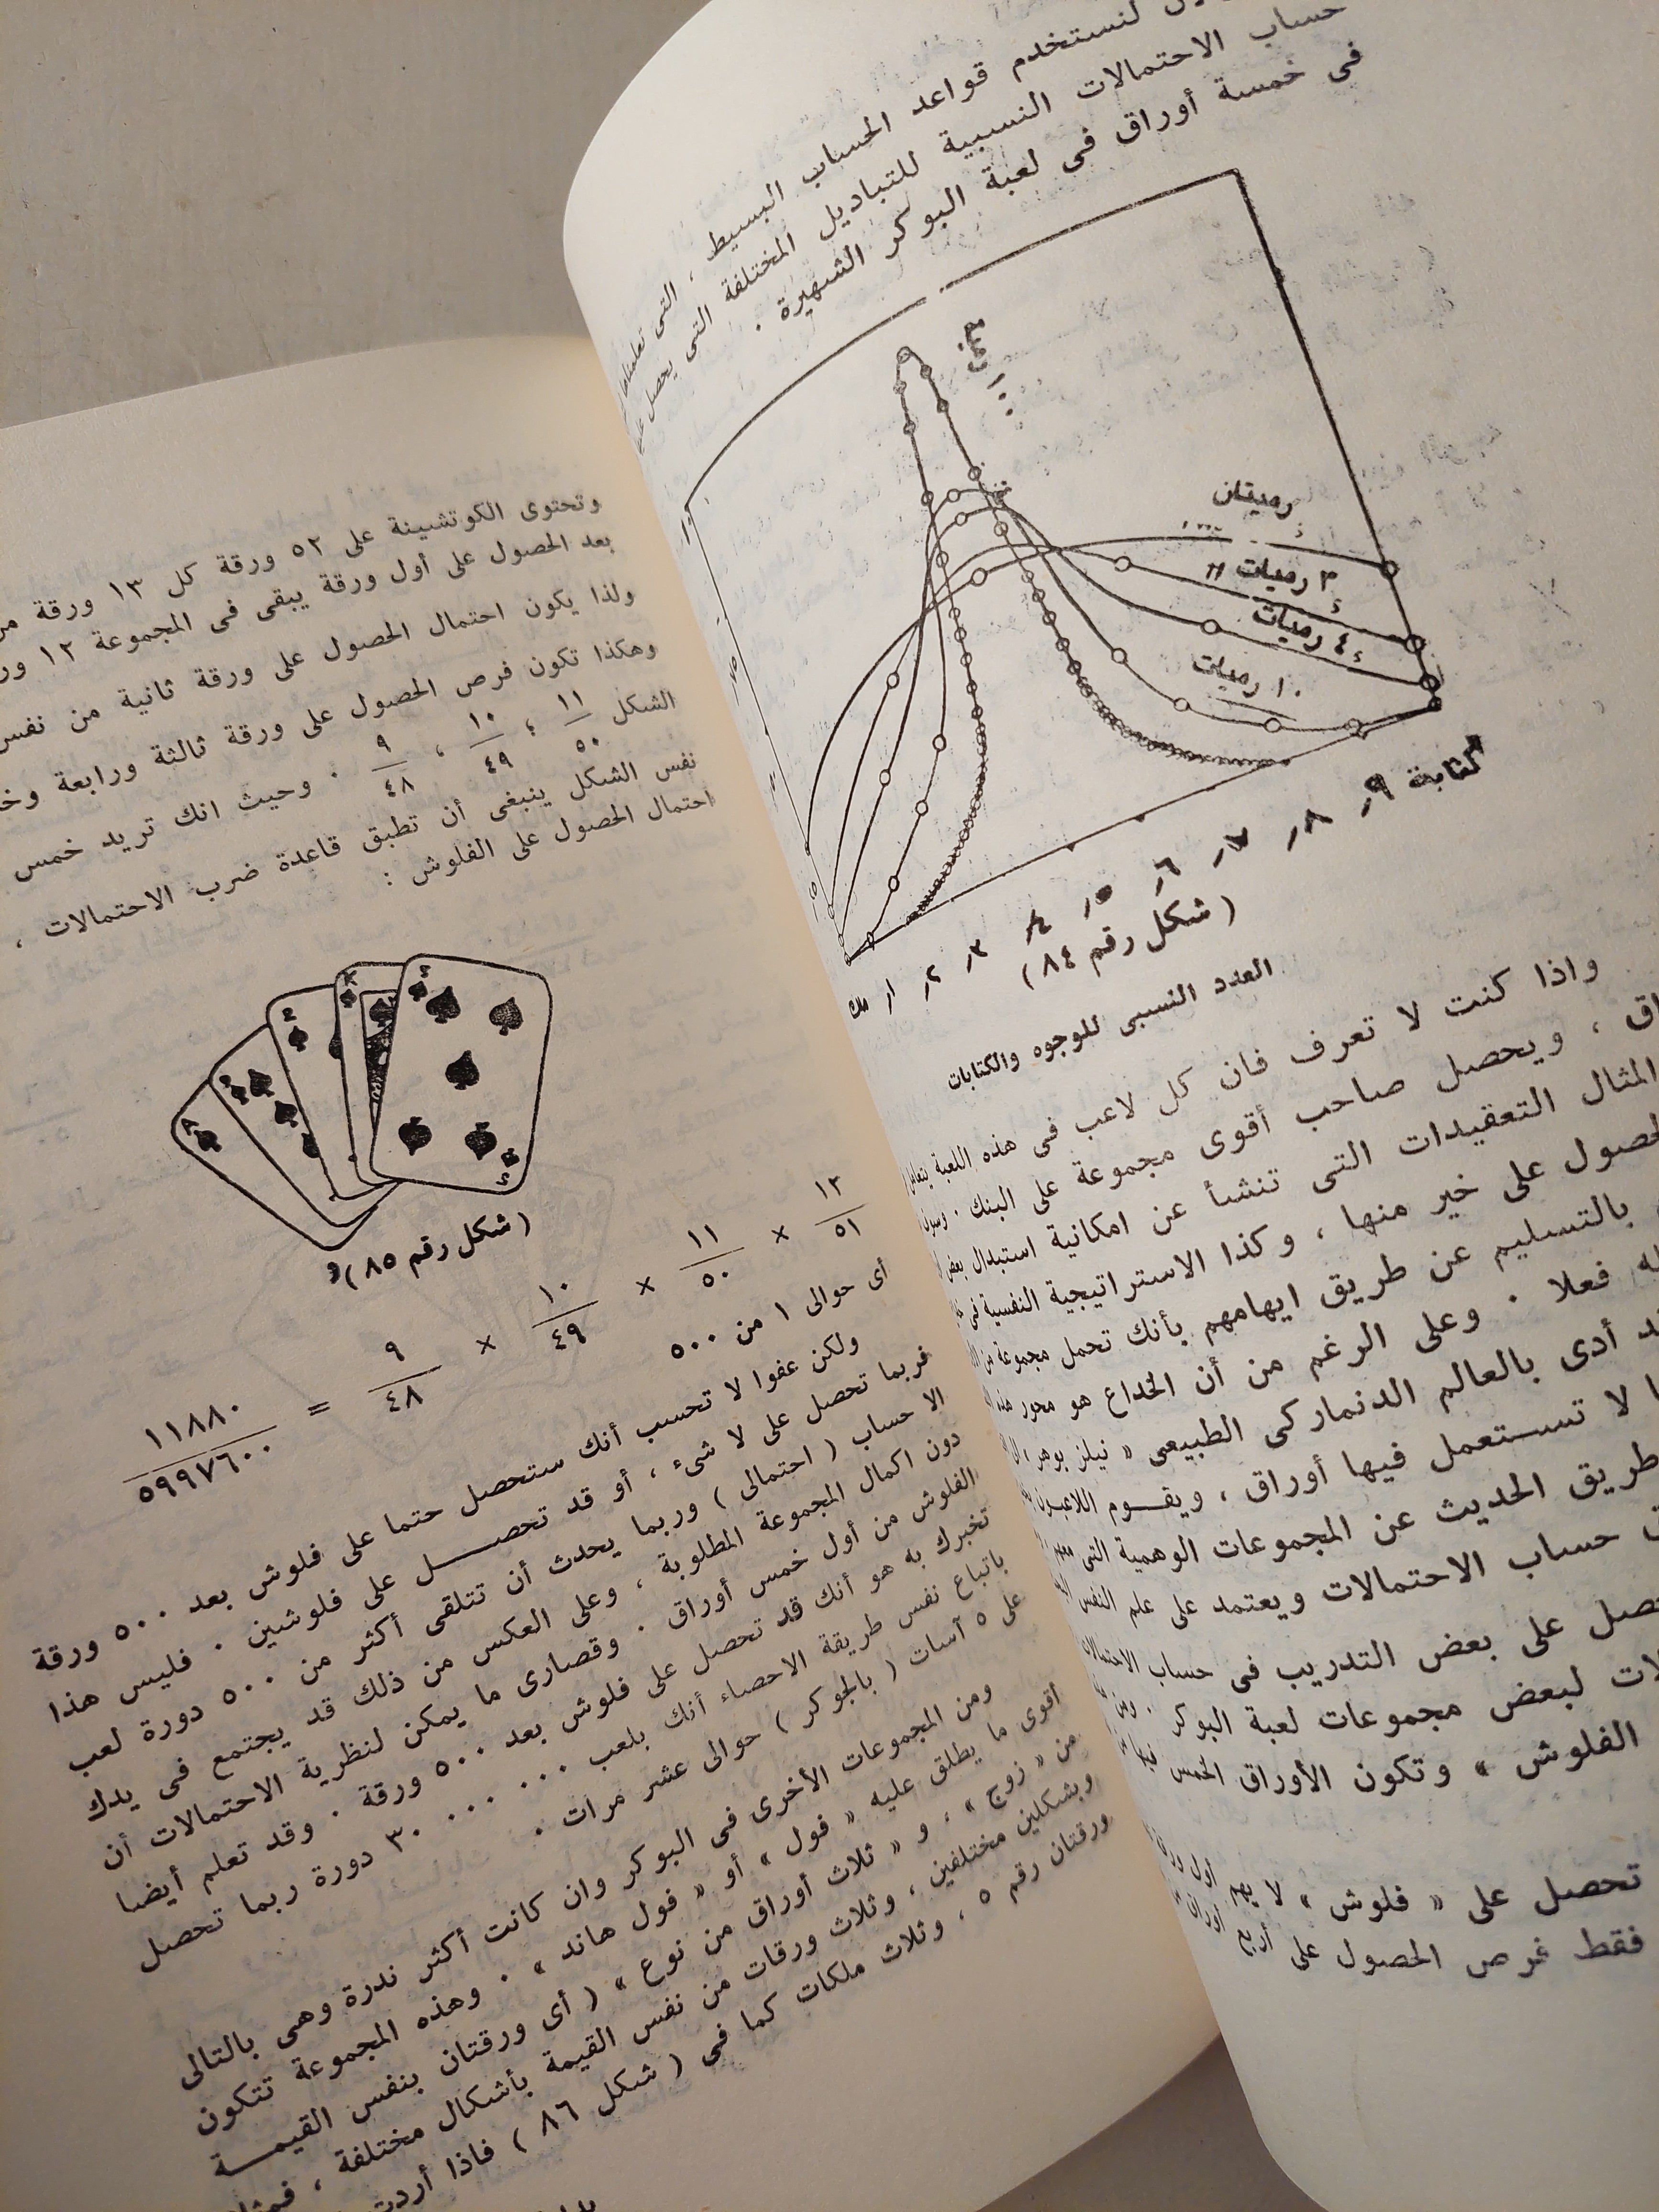 لنستخدم قواعد الحساب البسيط ، التى تعلمناها
حساب الاحتمالات النسبية للتباديل المختلفة التى يحصل
فى خمسة أوراق فى لعبة البوكر الشهيرة .
رمية
رميتان
٣ رميات
٤ رميات
١٠ رميات
الكتابة ٩ر ٨ر ٧ر ٦ر ٥ر ٤ر ٣ر ٢ر ١ر
( شكل رقم ٨٤ )
العدد النسبى للوجوه والكتابات
واذا كنت لا تعرف فان كل لاعب فى هذه اللعبة
، ويحصل صاحب أقوى مجموعة على البنك .
المثال التعقيدات التى تنشأ عن امكانية استبدال بعض
على خير منها ، وكذا الاستراتيجية النفسية فى
بالتسليم عن طريق ايهامهم بأنك تحمل مجموعة من
فعلا . وعلى الرغم من أن الخداع هو محور هذه
أدى بالعالم الدنماركى الطبيعى « نيلز بوهر »
لا تستعمل فيها أوراق ، ويقوم اللاعبون
طريق الحديث عن المجموعات الوهمية التى
حساب الاحتمالات ويعتمد على علم النفس
على بعض التدريب فى حساب الاحتمالات
لبعض مجموعات لعبة البوكر . ومن
الفلوش » وتكون الأوراق الخمس فيها
تحصل على « فلوش » لا يهم أول
فقط فرص الحصول على أربع أوراق
وتحتوى الكوتشينة على ٥٢ ورقة كل ١٣ ورقة
بعد الحصول على أول ورقة يبقى فى المجموعة ١٢
ولذا يكون احتمال الحصول على ورقة ثانية من نفس
وهكذا تكون فرص الحصول على ورقة ثالثة ورابعة
الشكل ١١/٥٠ ، ١٠/٤٩ ، ٩/٤٨ . وحيث انك تريد خمس
نفس الشكل ينبغى أن تطبق قاعدة ضرب الاحتمالات ،
احتمال الحصول على الفلوش :
( شكل رقم ٨٥ )
١٢/٥١ × ١١/٥٠ × ١٠/٤٩ × ٩/٤٨ = ١١٨٨٠/٥٩٩٧٦٠٠
أى حوالى ١ من ٥٠٠
ولكن عفوا لا تحسب أنك ستحصل حتما على فلوش بعد ٥٠٠ ورقة
فربما تحصل على لا شىء ، أو قد تحصل على فلوشين . فليس هذا
الا حساب ( احتمالى ) وربما يحدث أن تتلقى أكثر من ٥٠٠ دورة لعب
دون اكمال المجموعة المطلوبة ، وعلى العكس من ذلك قد يجتمع فى يدك
الفلوش من أول خمس أوراق . وقصارى ما يمكن لنظرية الاحتمالات أن
تخبرك به هو أنك قد تحصل على فلوش بعد ٥٠٠ ورقة . وقد تعلم أيضا
باتباع نفس طريقة الاحصاء أنك بلعب ٣٠ ٠٠٠ ٠٠٠ دورة ربما تحصل
على ٥ آسات ( بالجوكر ) حوالى عشر مرات .
ومن المجموعات الأخرى فى البوكر وان كانت أكثر ندرة وهى بالتالى
أقوى ما يطلق عليه « فول » أو « فول هاند » . وهذه المجموعة تتكون
من « زوج » ، و « ثلاث أوراق من نوع » ( أى ورقتان بنفس القيمة
وبشكلين مختلفين ، وثلاث ورقات من نفس القيمة بأشكال مختلفة ،
ورقتان رقم ٥ ، وثلاث ملكات كما فى ( شكل ٨٦ ) فاذا أردت